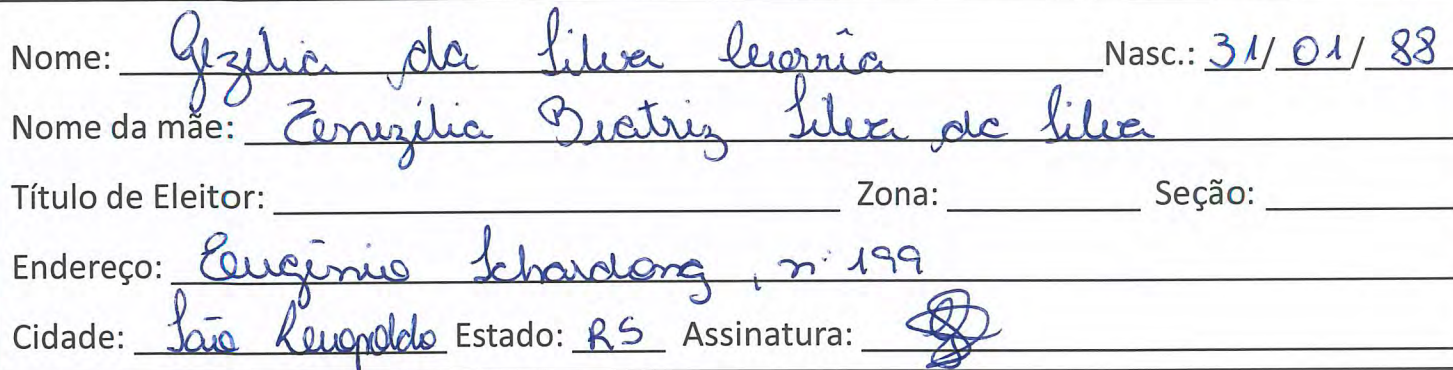 Nome: Gezélia da Silva Nasc.: 31/01/88
Nome da mãe: Zenezília Beatriz Silva da Silva
Título de Eleitor: Zona: Seção:
Endereço: Eugênio Schardong, nº 199
Cidade: São Leopoldo Estado: RS Assinatura: